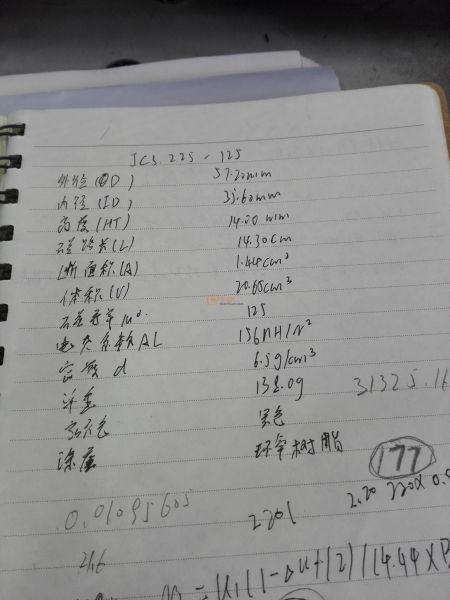 JCS.225-125
外径(OD) 57.20mm
内径(ID) 35.60mm
高度(HT) 14.00mm
磁路长(L) 14.30cm
断面积(A) 1.44cm²
体积(V) 20.65cm³
磁导率μ 125
电感系数AL 156nH/N²
密度 d 6.5g/cm³
净重 132.0g 31325.16
颜色 黑色
涂层 环氧树脂
177
0.01095605
2201 2.20 220x0.0
216